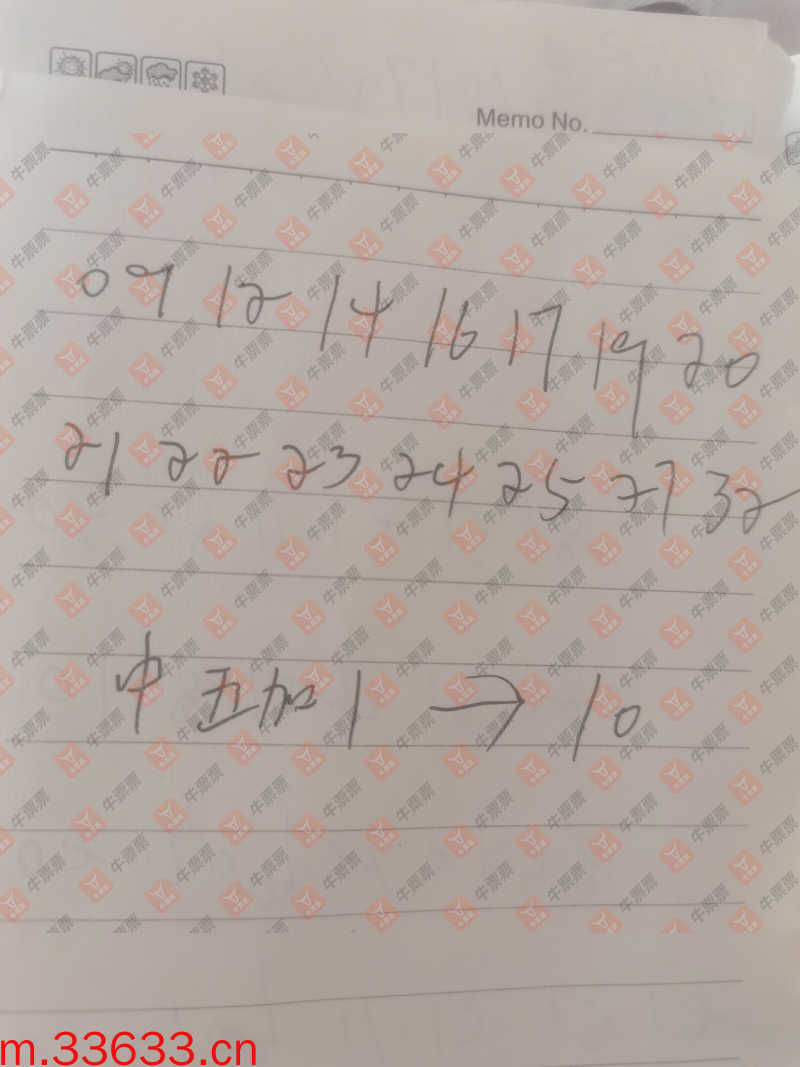 Memo No.
09 12 14 16 17 19 20
21 22 23 24 25 27 32
中五加1 → 10
牛票票
m.33633.cn